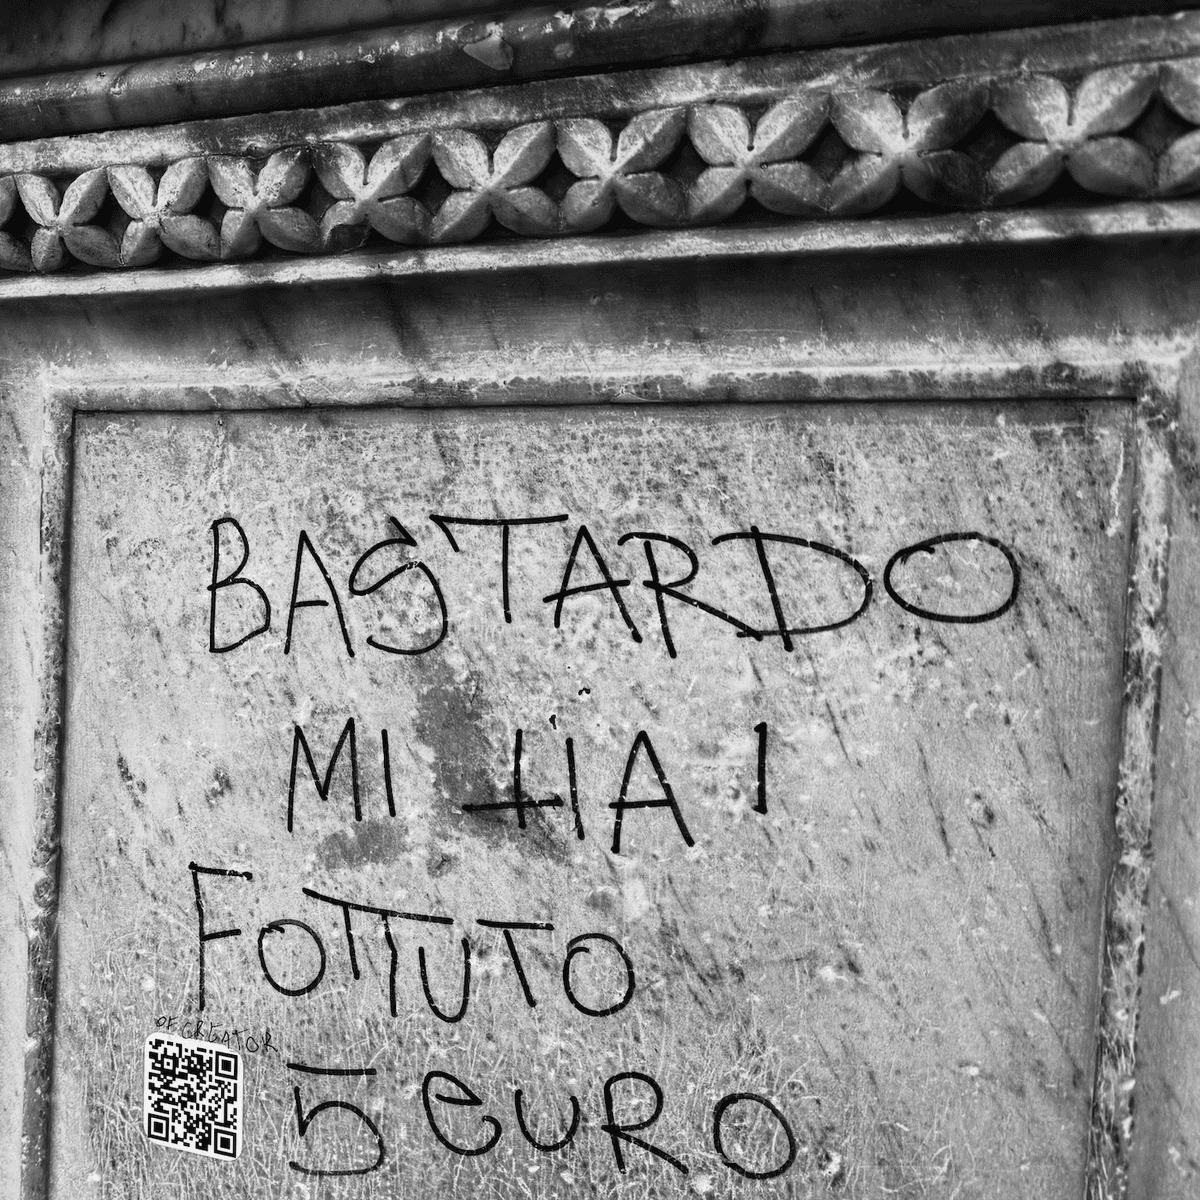 BASTARDO
MI HA !
FOTTUTO
OF CREATOR
5 euRO